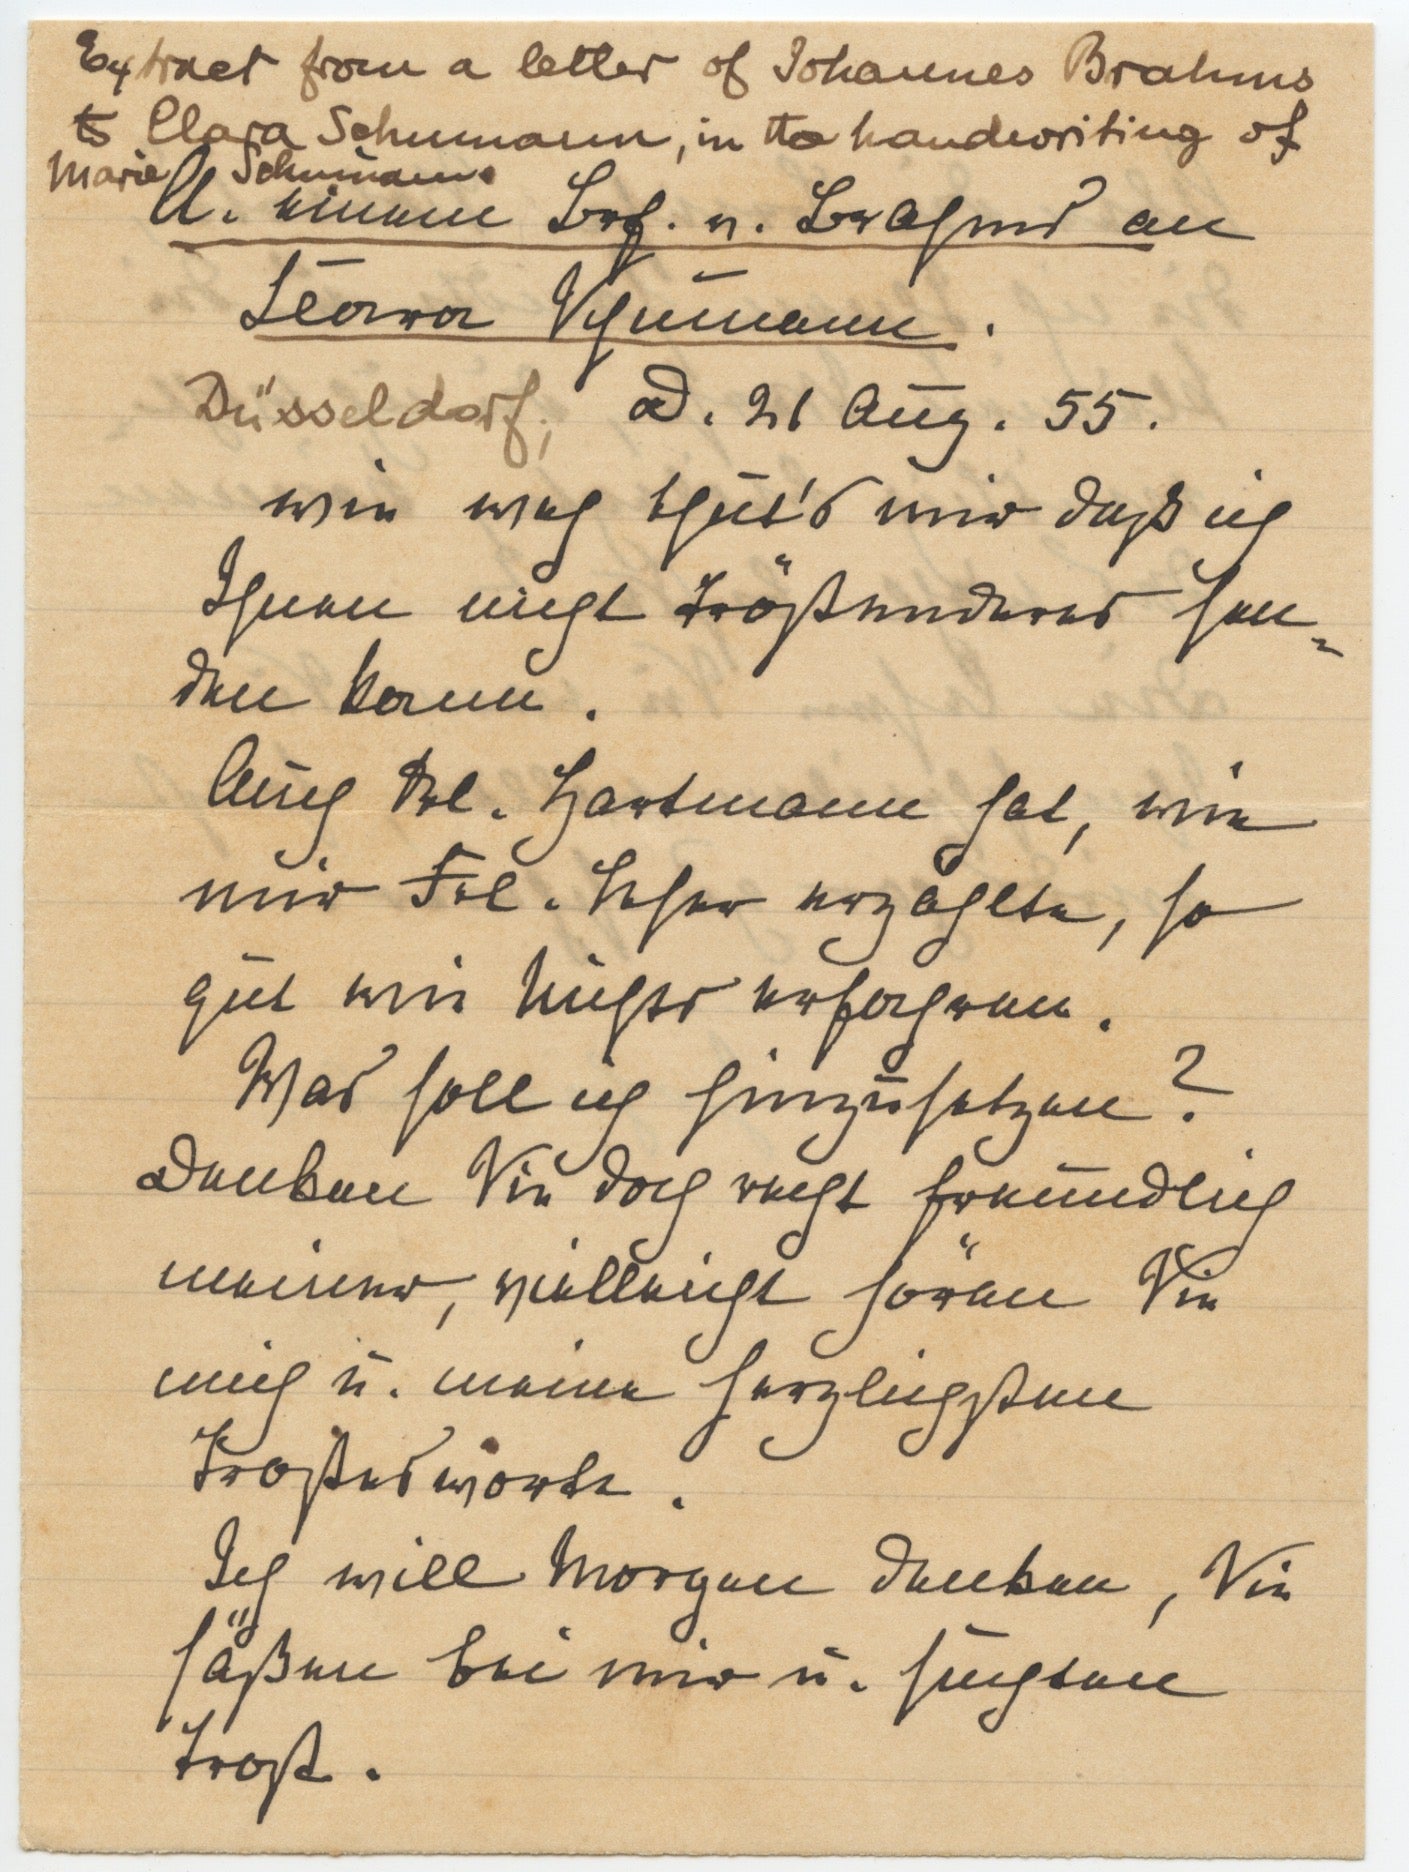 Extract from a letter of Johannes Brahms
to Clara Schumann, in the handwriting of
Marie Schumann.
A. einem Brf. v. Brahms an
Clara Schumann.
Düsseldorf, D. 21 Aug. 55.
wie weh thut's mir daß ich
Ihnen nicht Tröstenderes sen-
den kann.
Auch Frl. Hartmann hat, wie
mir Frl. Leser erzählte, so
gut wie Nichts erfahren.
Was soll ich hinzusetzen?
Denken Sie doch recht freundlich
meiner, vielleicht hören Sie
mich u. meine herzlichsten
Trostesworte.
Ich will Morgen denken, Sie
säßen bei mir u. suchten
Trost.